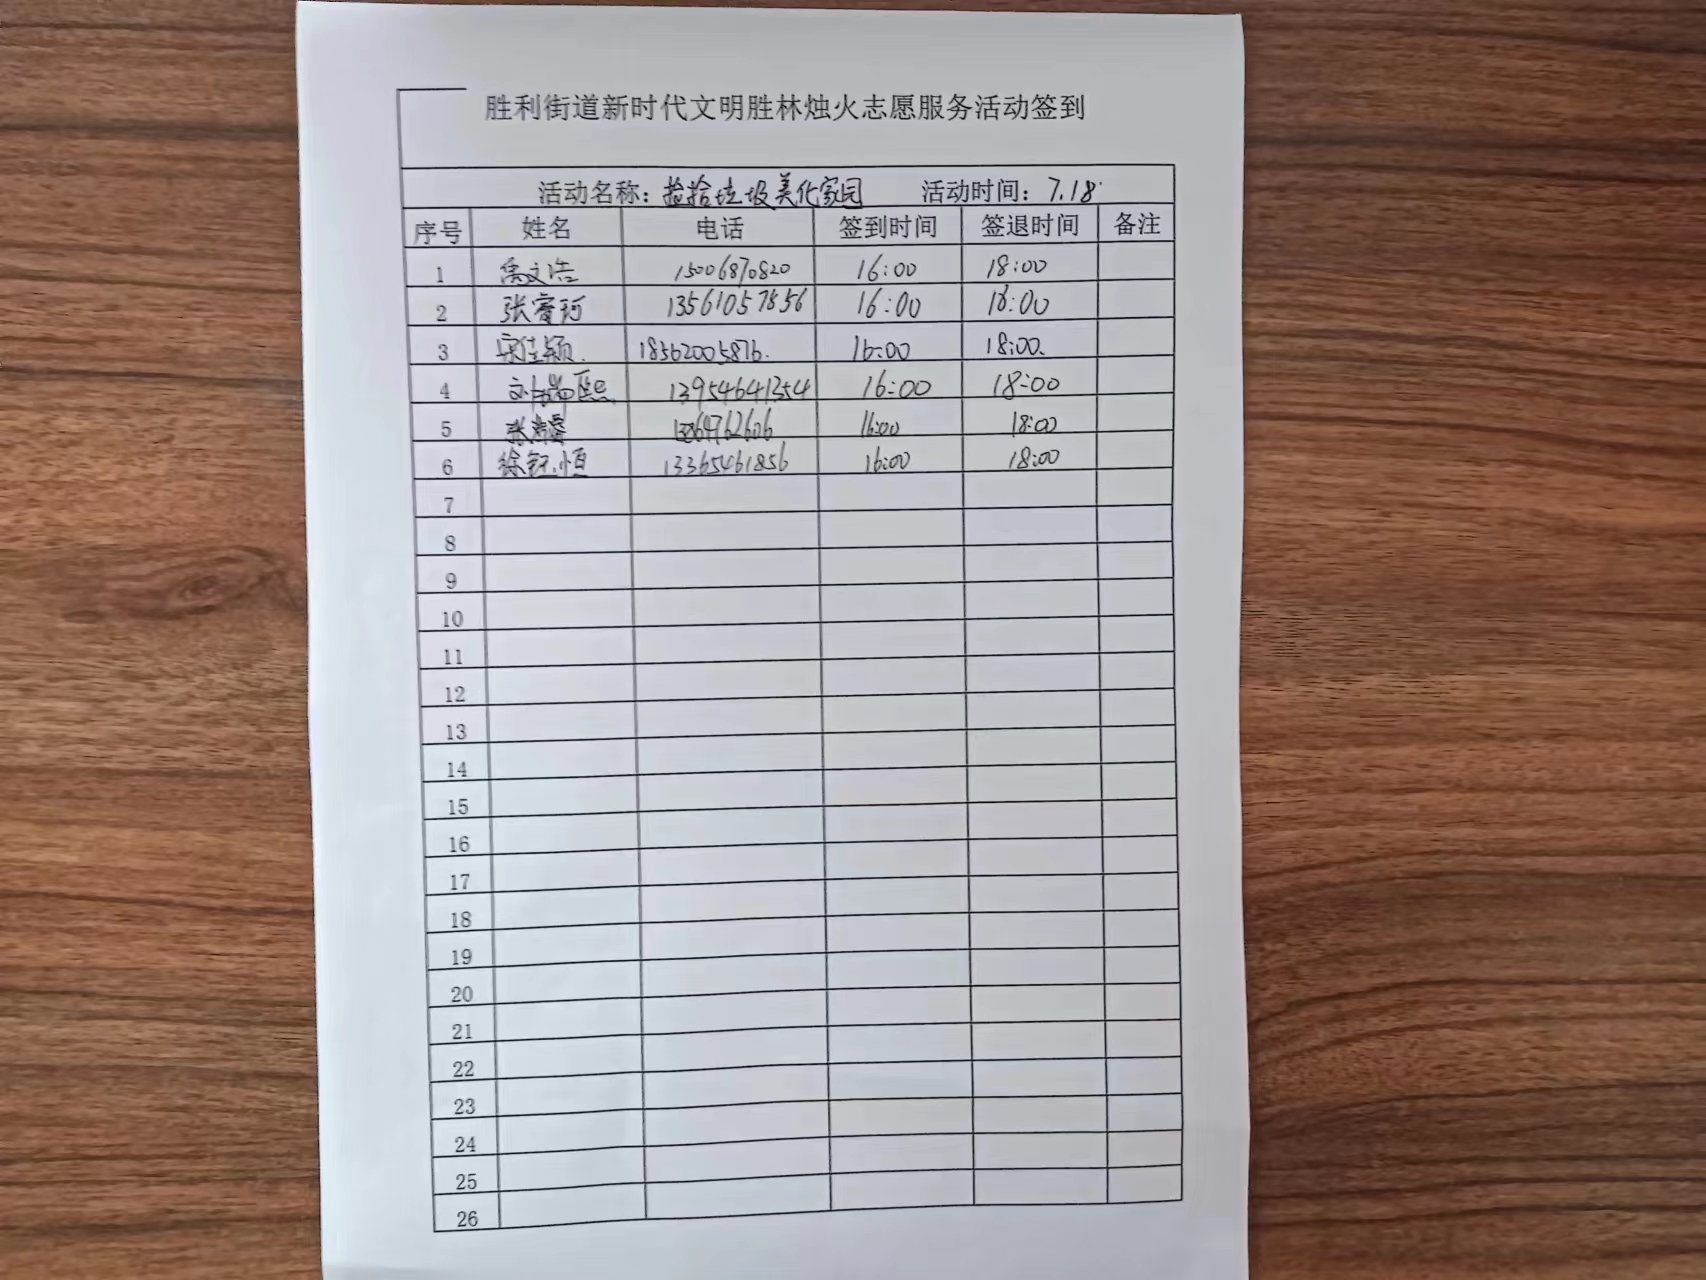 胜利街道新时代文明胜林烛火志愿服务活动签到
活动名称：捡拾垃圾美化家园 活动时间：7.18
序号 姓名 电话 签到时间 签退时间 备注
1 禹文浩 15006870820 16:00 18:00
2 张睿珂 13561057856 16:00 18:00
3 宋佳颖. 18562005876. 16:00 18:00.
4 刘瑞熙 13954641354 16:00 18:00
5 16:00 18:00
6 徐钰恒 13365461856 16:00 18:00
7
8
9
10
11
12
13
14
15
16
17
18
19
20
21
22
23
24
25
26